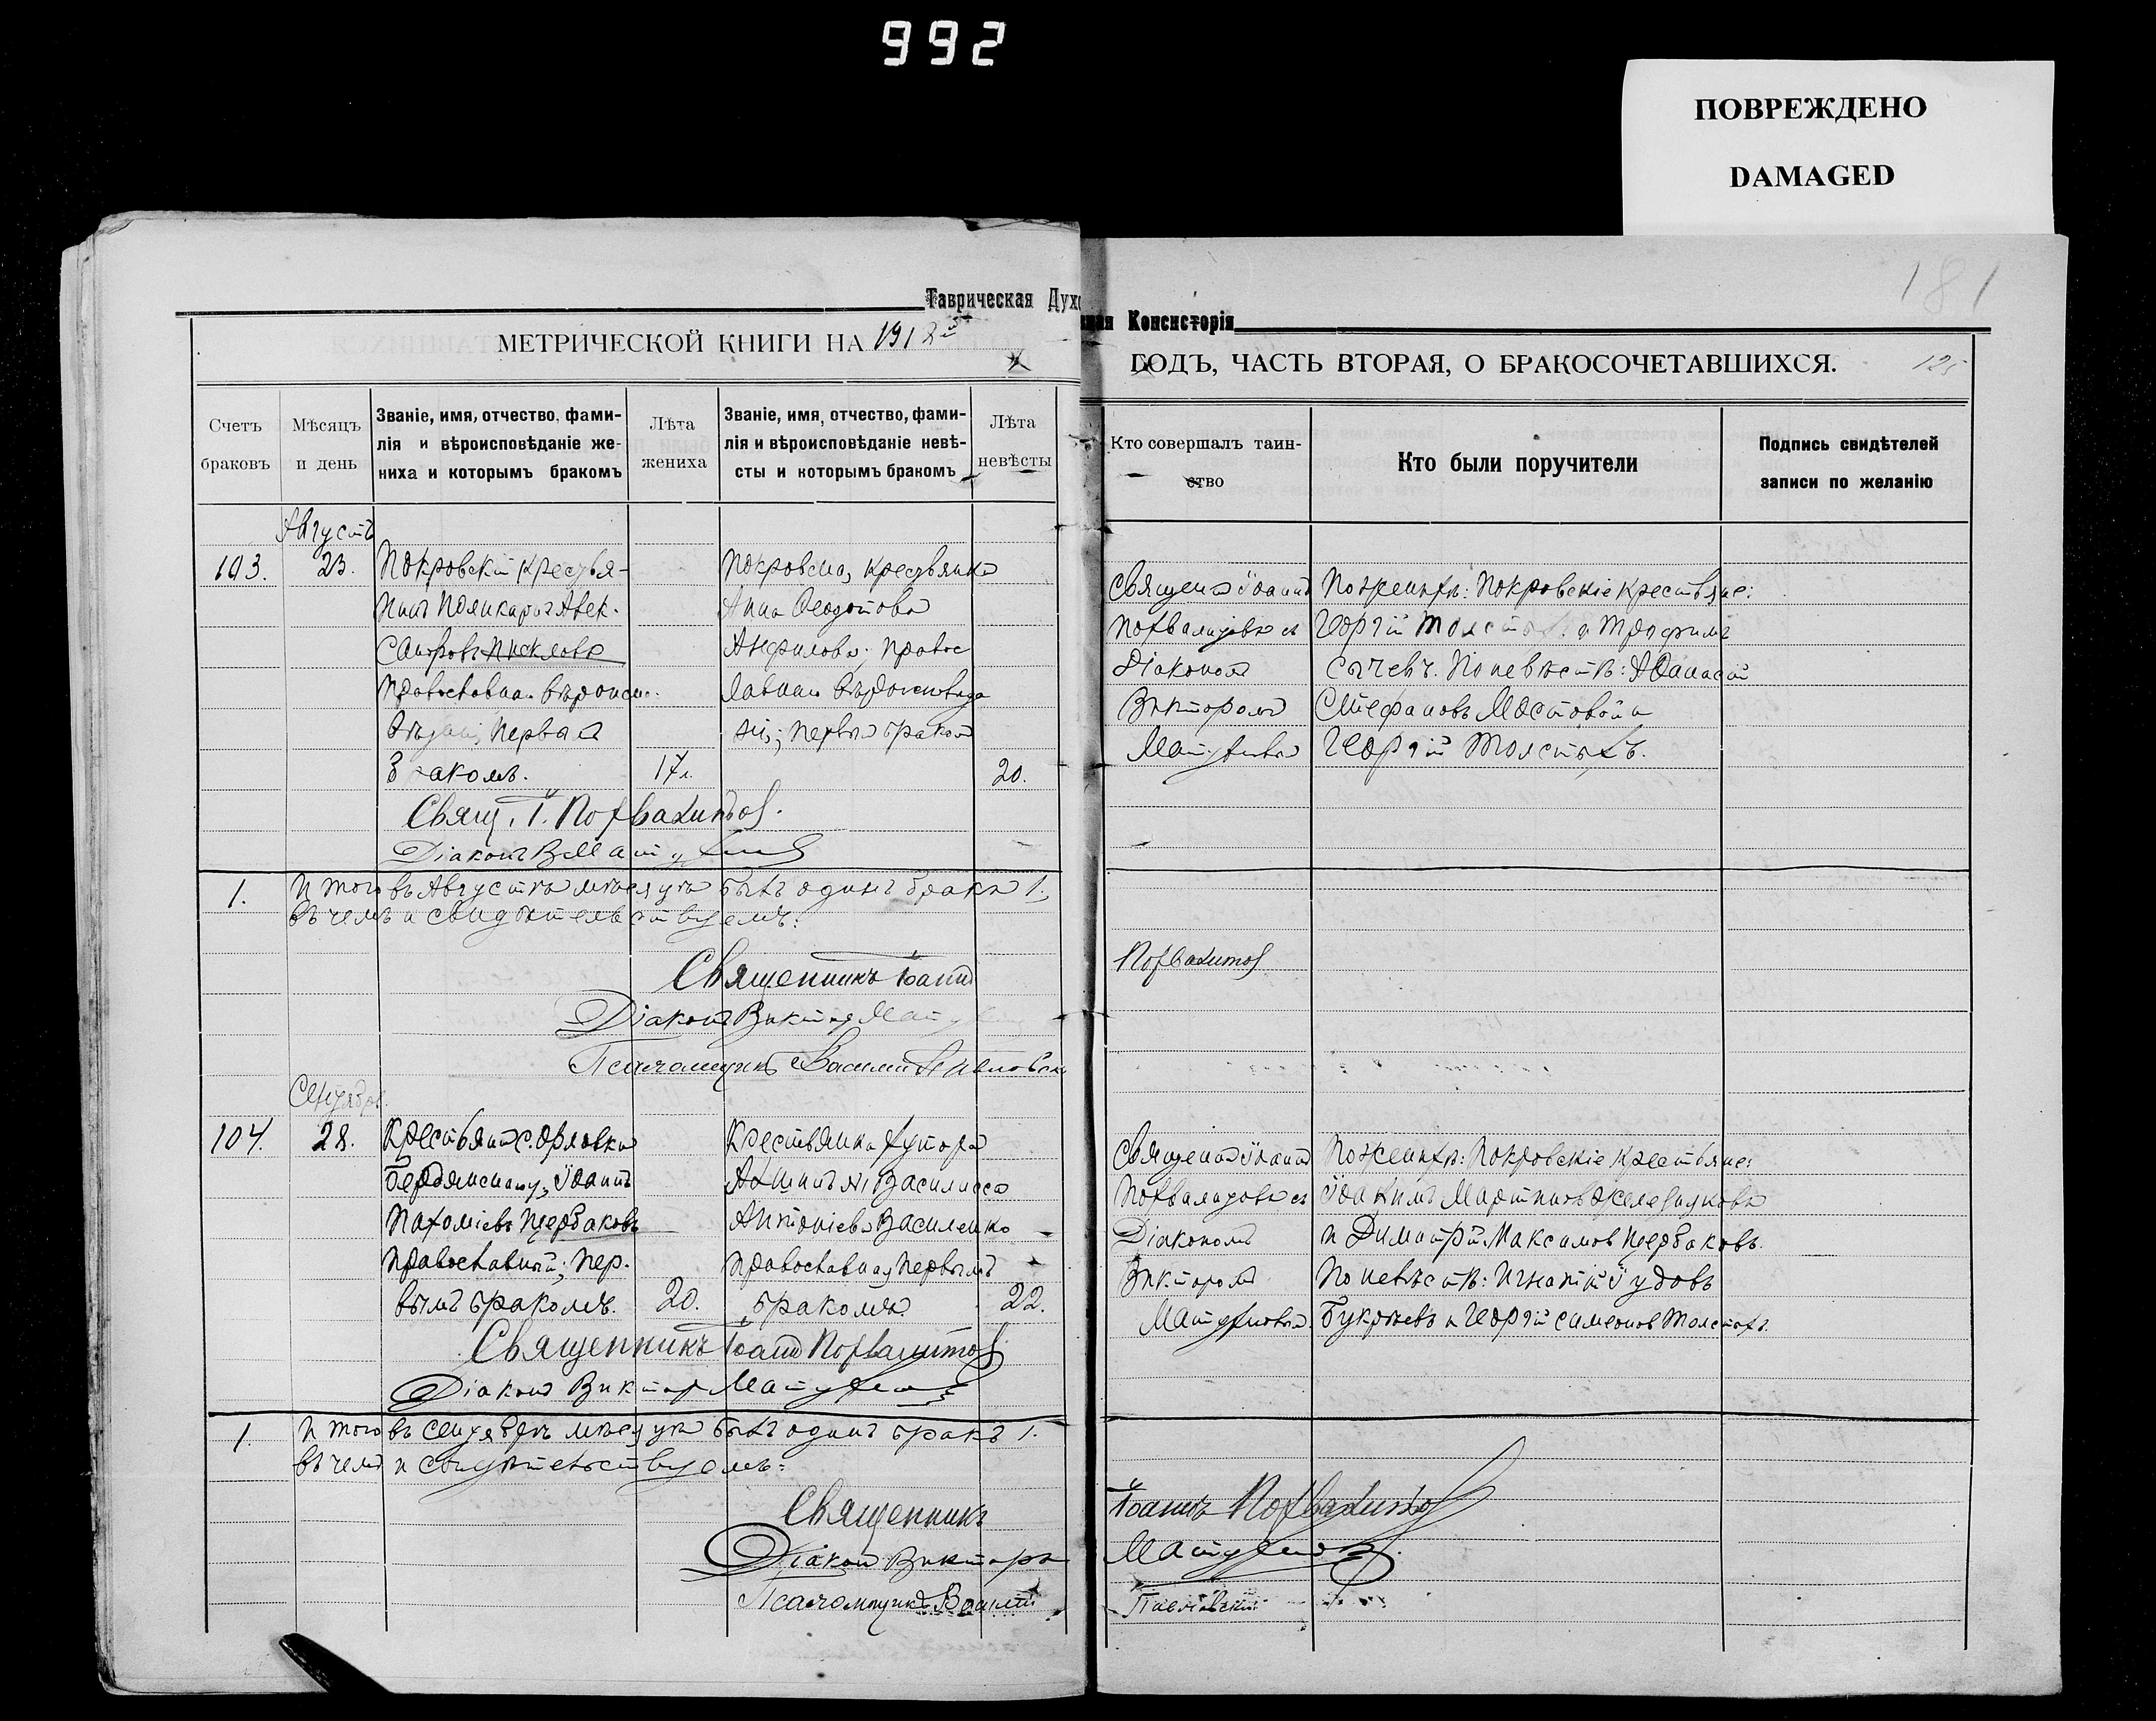 992
ПОВРЕЖДЕНО
DAMAGED
181
Таврическая Духо
вная Консисторія
МЕТРИЧЕСКОЙ КНИГИ НА 1912й
ГОДЪ, ЧАСТЬ ВТОРАЯ, О БРАКОСОЧЕТАВШИХСЯ.
Счетъ
браковъ
Мѣсяцъ
и день
Званіе, имя, отчество, фами-
лія и вѣроисповѣданіе же-
ниха и которымъ бракомъ
Лѣта
жениха
Званіе, имя, отчество, фами-
лія и вѣроисповѣданіе невѣ-
сты и которымъ бракомъ
Лѣта
невѣсты
Кто совершалъ таин-
ство
Кто были поручители
Подпись свидѣтелей
записи по желанію
Августъ
103.
23.
Покровскій крестья-
нинъ Поликарпъ Алек-
сандровъ
православнаго вѣроиспо-
вѣданія, первымъ
бракомъ.
17 л.
Покровская крестьянка
Анна Ѳеодотова
Анфилова; правос
лавнаго вѣроисповѣда
нія; первымъ бракомъ
20.
Священ. Іоаннъ
Похвалитовъ съ
Діакономъ
Викторомъ
По женихѣ: Покровскіе крестьяне:
Георгій Толстовъ и Трофимъ
Сычевъ. По невѣстѣ: Аѳанасій
Стефановъ Мостовой и
Георгій Толстыхъ.
Свящ. І. Похвалитовъ.
Діаконъ В.
1.
Итого въ Августѣ мѣсяцѣ былъ одинъ бракъ 1.
въ чемъ и свидѣтельствуемъ:
Священникъ Іоаннъ
Похвалитовъ
Діаконъ Викторъ
Псаломщикъ Василій Павловскій
Сентябрь.
104.
28.
Крестьянинъ с. Орловки
Бердянскаго у. Іоаннъ
Пахоміевъ Щербаковъ
православный; пер-
вымъ бракомъ.
20.
Крестьянка хутора
Василисса
Антоніева Василенко
православная, первымъ
бракомъ
22.
Священ. Іоаннъ
Похвалитовъ съ
Діакономъ
Викторомъ
По женихѣ: Покровскіе крестьяне:
Іоакимъ Мартиновъ Железняковъ
и Димитрій Максимовъ Щербаковъ.
По невѣстѣ: Игнатій Іудовъ
Букрѣевъ и Георгій Симеоновъ Толстыхъ.
Священникъ Іоаннъ Похвалитовъ
Діаконъ Викторъ
1.
Итого въ Сентябрѣ мѣсяцѣ былъ одинъ бракъ 1.
въ чемъ и свидѣтельствуемъ:
Священникъ
Іоаннъ Похвалитовъ
Діаконъ Викторъ
Псаломщикъ Василій
Павловскій